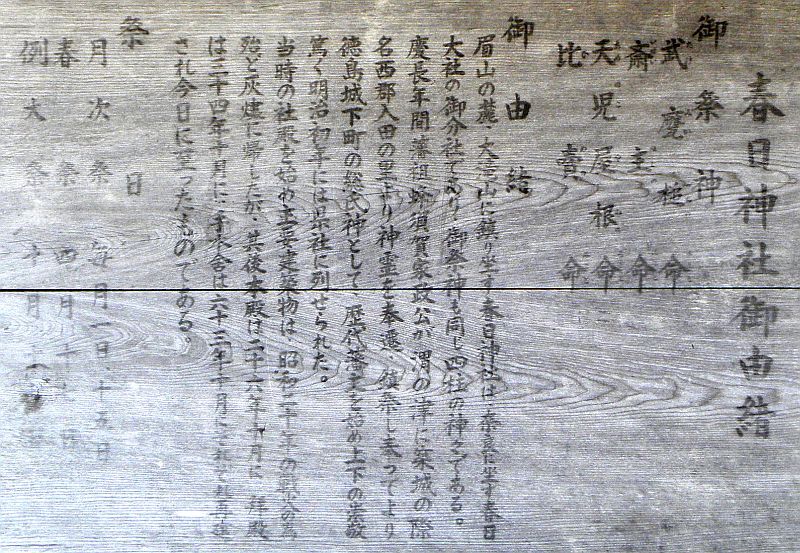 春日神社御由緒
御祭神
武甕槌命
斎主命
天児屋根命
比売命
御由緒
眉山の麓、大滝山に鎮り坐す春日神社は、奈良に坐す春日
大社の御分社であり、御祭神も同じ四柱の神々である。
慶長年間藩祖蜂須賀家政公が渭の津に築城の際
名西郡入田の里より神霊を奉遷、鎮祭し奉ってより
徳島城下町の総氏神として、歴代藩主を始め上下の崇敬
篤く明治初年には県社に列せられた。
当時の社殿を始め主要建築物は、昭和二十年の戦災の為
殆ど灰燼に帰したが、其後本殿は二十六年十月に、拝殿
は三十四年十月に、手水舎は六十三年十月に
され今日に至ったものである。
祭日
月次祭 毎月一日、十五日
春祭 四月十
例大祭 十月十